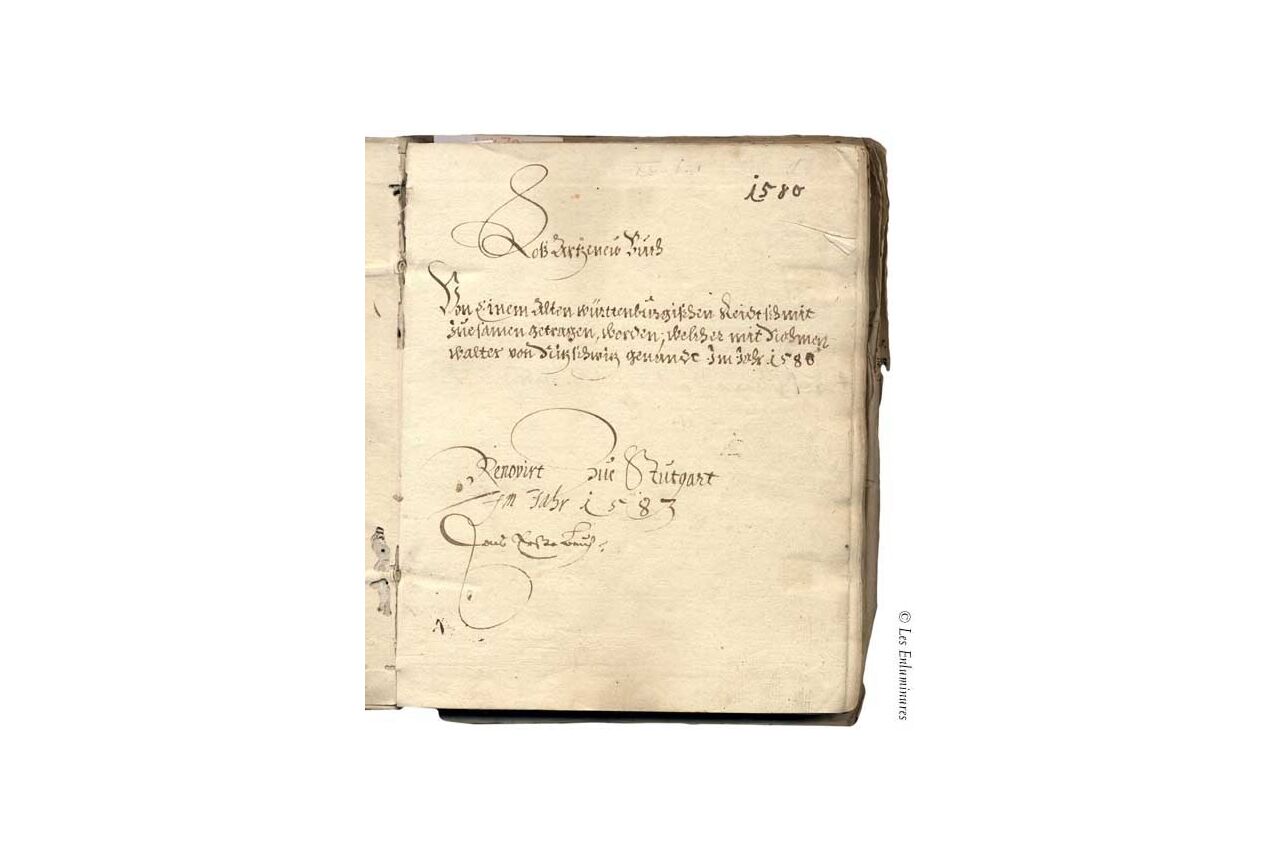 1580
Roß Artzeneÿ Buch
Von Einem Alten württenburgischen Reidtschmit
zuesamen getragen, worden, welcher mit Nahmen
walter von genandt Im Jahr 1580
Renovirt zue Stutgart
Im Jahr 1583
Das Erste Buch
© Les Enluminures